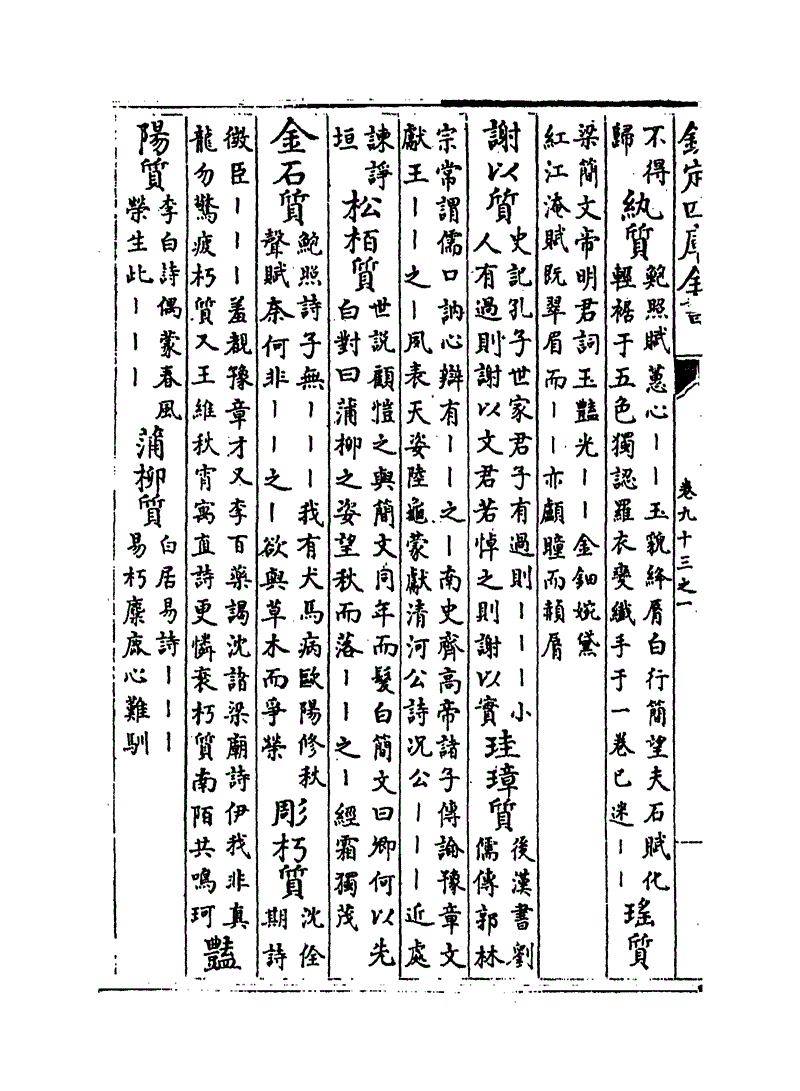 欽定四庫全書
卷九十三之一
不得
歸
紈質
鮑照賦蕙心丨丨玉貌絳脣白行簡望夫石賦化
輕裾于五色獨認羅衣變纖手于一卷已迷丨丨
瑤質
梁簡文帝明君詞玉豔光丨丨金鈿婉黛
紅江淹賦既翠眉而丨丨亦顱瞳而赬脣
謝以質
史記孔子世家君子有過則丨丨丨小
人有過則謝以文君若悼之則謝以實
珪璋質
後漢書劉
儒傳郭林
宗常謂儒口訥心辯有丨丨之丨南史齊高帝諸子傳論豫章文
獻王丨丨之丨夙表天姿陸龜蒙獻清河公詩况公丨丨丨近處
諫諍
垣
松栢質
世說顧愷之與簡文同年而髮白簡文曰卿何以先
白對曰蒲柳之姿望秋而落丨丨之丨經霜獨茂
金石質
鮑照詩子無丨丨丨我有犬馬病歐陽修秋
聲賦奈何非丨丨之丨欲與草木而爭榮
彫朽質
沈佺
期詩
微臣丨丨丨羞覩豫章才又李百藥謁沈諸梁廟詩伊我非真
龍勿驚疲朽質又王維秋宵寓直詩更憐衰朽質南陌共鳴珂
豔
陽質
李白詩偶蒙春風
榮生此丨丨丨
蒲柳質
白居易詩丨丨丨
易朽麋鹿心難馴